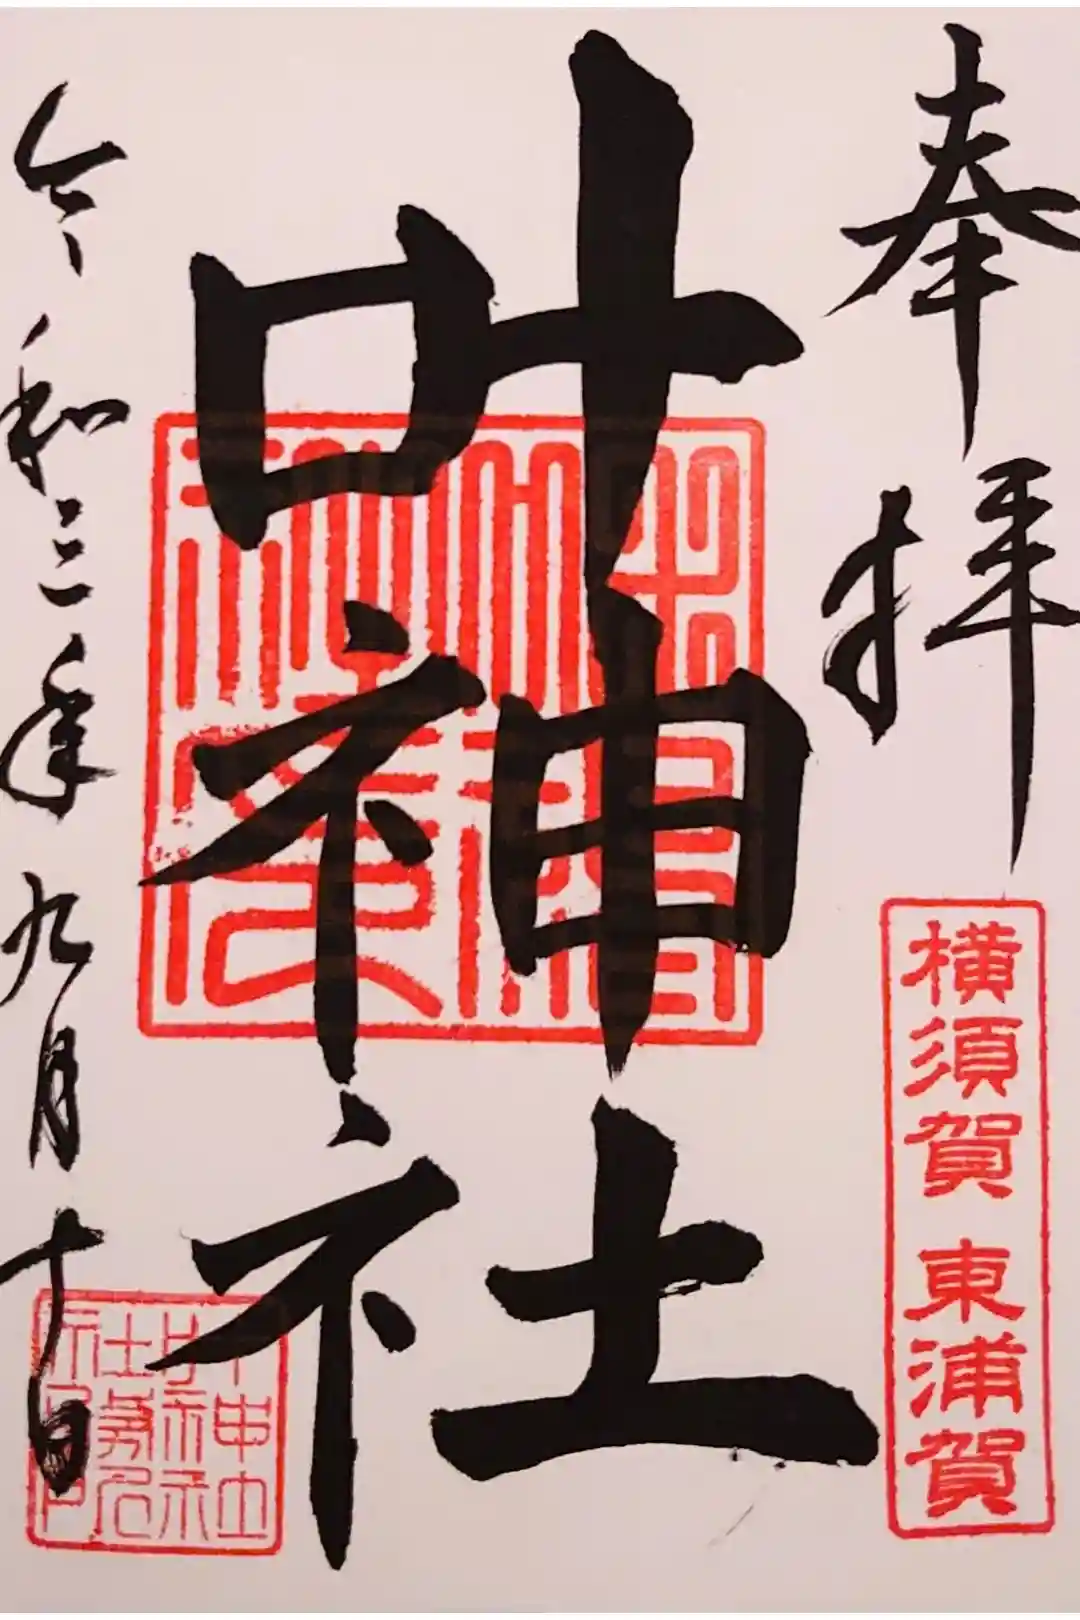 奉拝
横須賀 東浦賀
叶神社
令和三年九月十日
叶神社社務所印